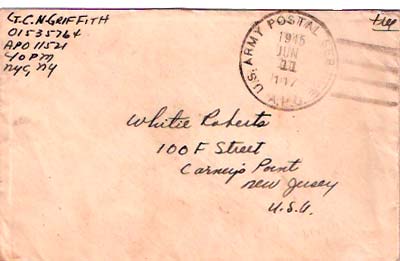 LT. C. N. GRIFFITH
01535764
APO 11521
% PM
NYC, NY
U.S. ARMY POSTAL SER
1945
JUN
11
A.P.O.
Free
Whitie Roberts
100 F Street
Carney's Point
New Jersey
U.S.A.